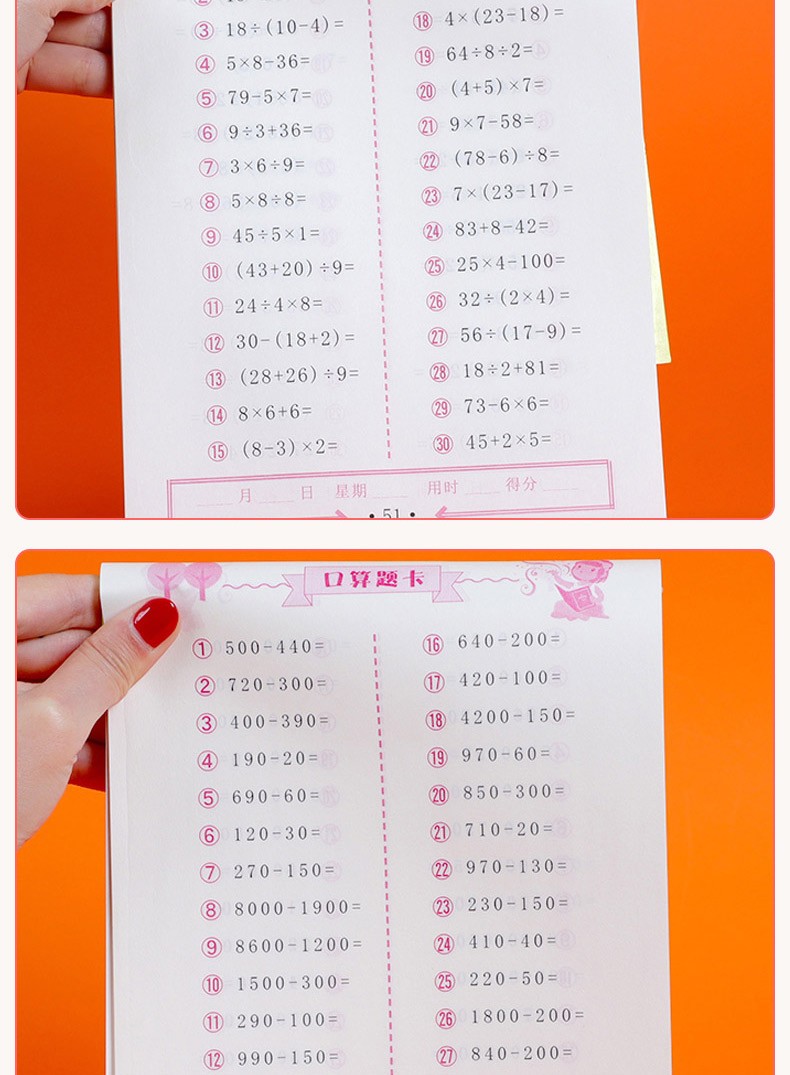 ③ 18÷(10-4)=
④ 5×8-36=
⑤ 79-5×7=
⑥ 9÷3+36=
⑦ 3×6÷9=
⑧ 5×8÷8=
⑨ 45÷5×1=
⑩ (43+20)÷9=
⑪ 24÷4×8=
⑫ 30-(18+2)=
⑬ (28+26)÷9=
⑭ 8×6+6=
⑮ (8-3)×2=
⑱ 4×(23-18)=
⑲ 64÷8÷2=
⑳ (4+5)×7=
㉑ 9×7-58=
㉒ (78-6)÷8=
㉓ 7×(23-17)=
㉔ 83+8-42=
㉕ 25×4-100=
㉖ 32÷(2×4)=
㉗ 56÷(17-9)=
㉘ 18÷2+81=
㉙ 73-6×6=
㉚ 45+2×5=
月 日 星期 用时 得分
• 51 •
口算题卡
① 500-440=
② 720-300=
③ 400-390=
④ 190-20=
⑤ 690-60=
⑥ 120-30=
⑦ 270-150=
⑧ 8000-1900=
⑨ 8600-1200=
⑩ 1500-300=
⑪ 290-100=
⑫ 990-150=
⑯ 640-200=
⑰ 420-100=
⑱ 4200-150=
⑲ 970-60=
⑳ 850-300=
㉑ 710-20=
㉒ 970-130=
㉓ 230-150=
㉔ 410-40=
㉕ 220-50=
㉖ 1800-200=
㉗ 840-200=